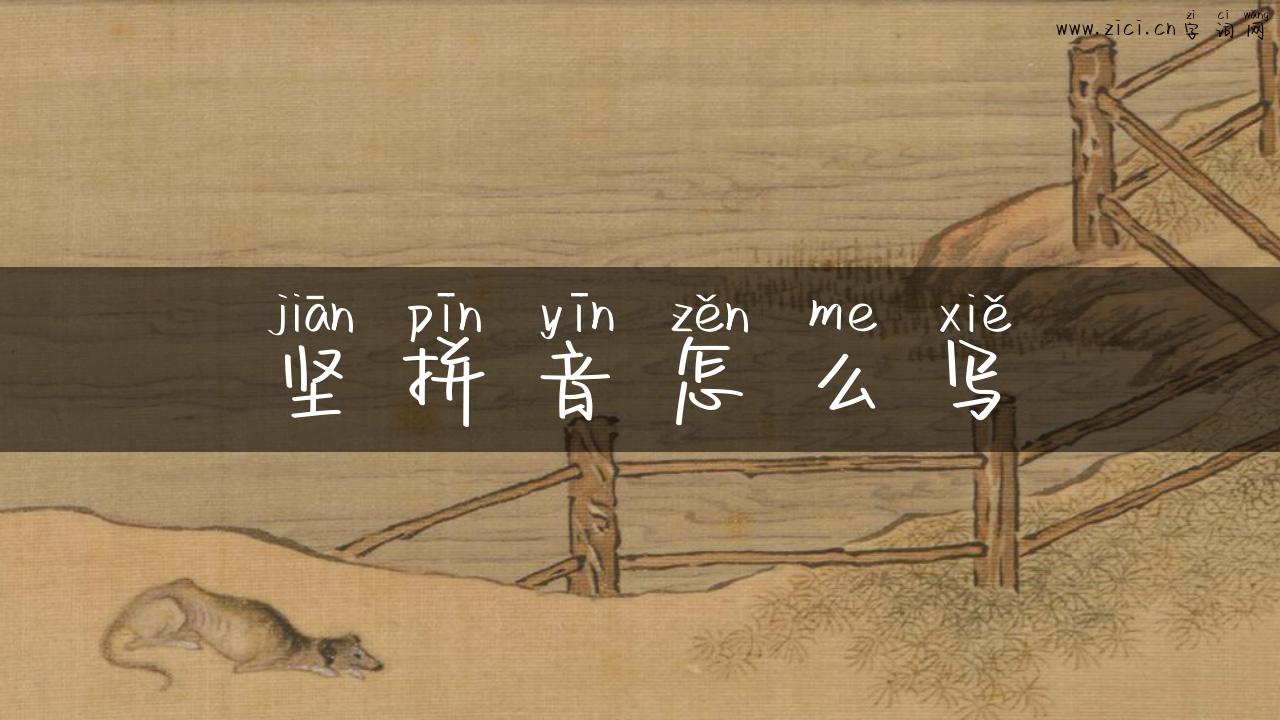 zi ci wang
www.zici.cn 字词网
jiān pīn yīn zěn me xiě
坚拼音怎么写